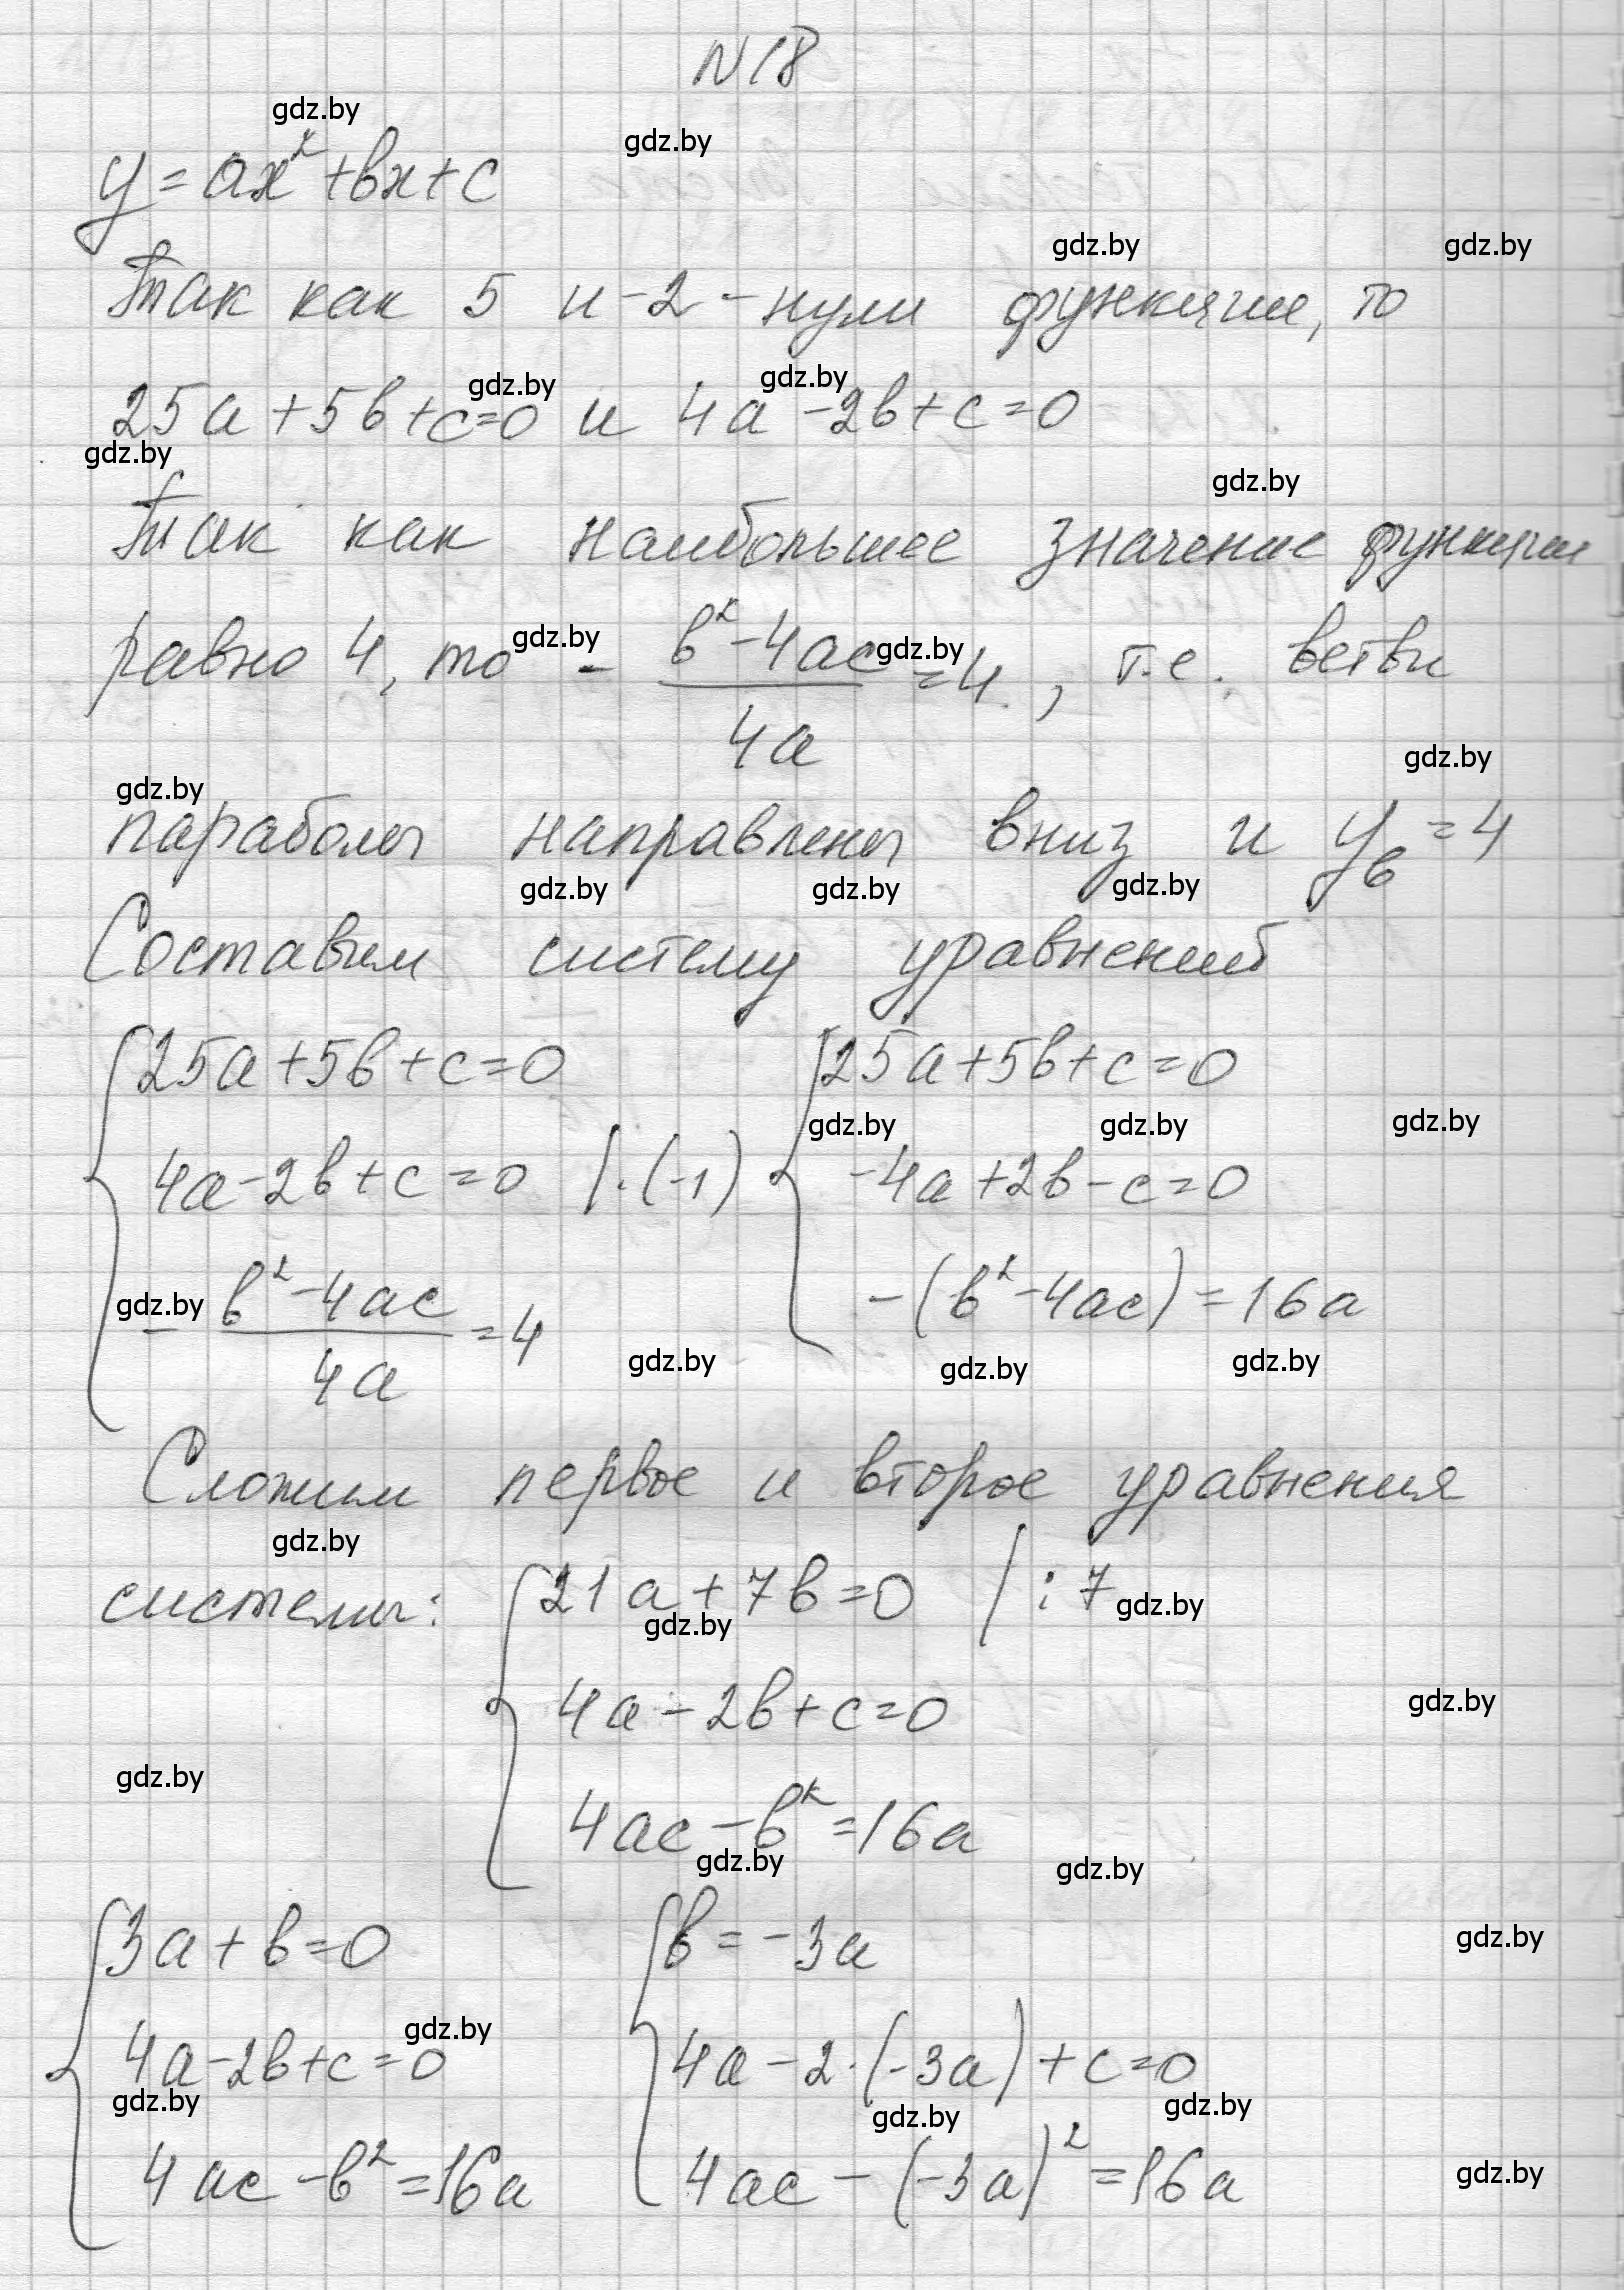 N18
gdz.by
gdz.by
y=ax²+вx+c
gdz.by gdz.by
Так как 5 и -2 - нули функции, то
gdz.by gdz.by
25a+5в+c=0 и 4a-2в+c=0
gdz.by
gdz.by
Так как наибольшее значение функции
gdz.by gdz.by
равно 4, то - (в²-4ac)/4a =4, т.е. ветви
gdz.by
gdz.by
параболы направлены вниз и yв=4
gdz.by gdz.by gdz.by
Составим систему уравнений
{25a+5в+c=0 {25a+5в+c=0
gdz.by gdz.by gdz.by
4a-2в+c=0 |·(-1) -4a+2в-c=0
- (в²-4ac)/4a =4 -(в²-4ac)=16a
gdz.by
gdz.by gdz.by gdz.by
Сложим первое и второе уравнения
gdz.by
системы: {21a+7в=0 |:7
gdz.by gdz.by
4a-2в+c=0
gdz.by
gdz.by
4ac-в²=16a
gdz.by gdz.by
{3a+в=0 {в=-3a
gdz.by
gdz.by
4a-2в+c=0 4a-2·(-3a)+c=0
gdz.by gdz.by gdz.by
4ac-в²=16a 4ac-(-3a)²=16a
gdz.by